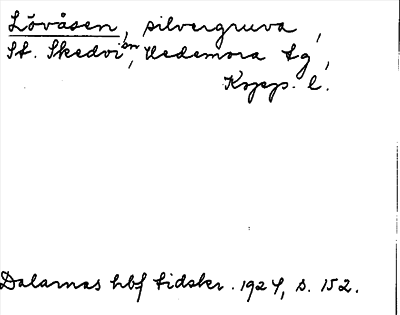 Lövåsen, silvergruva,
St. Skedvi sn, Hedemora tg,
Kopp. l.
Dalarnas hbf tidskr. 1924, s. 152.